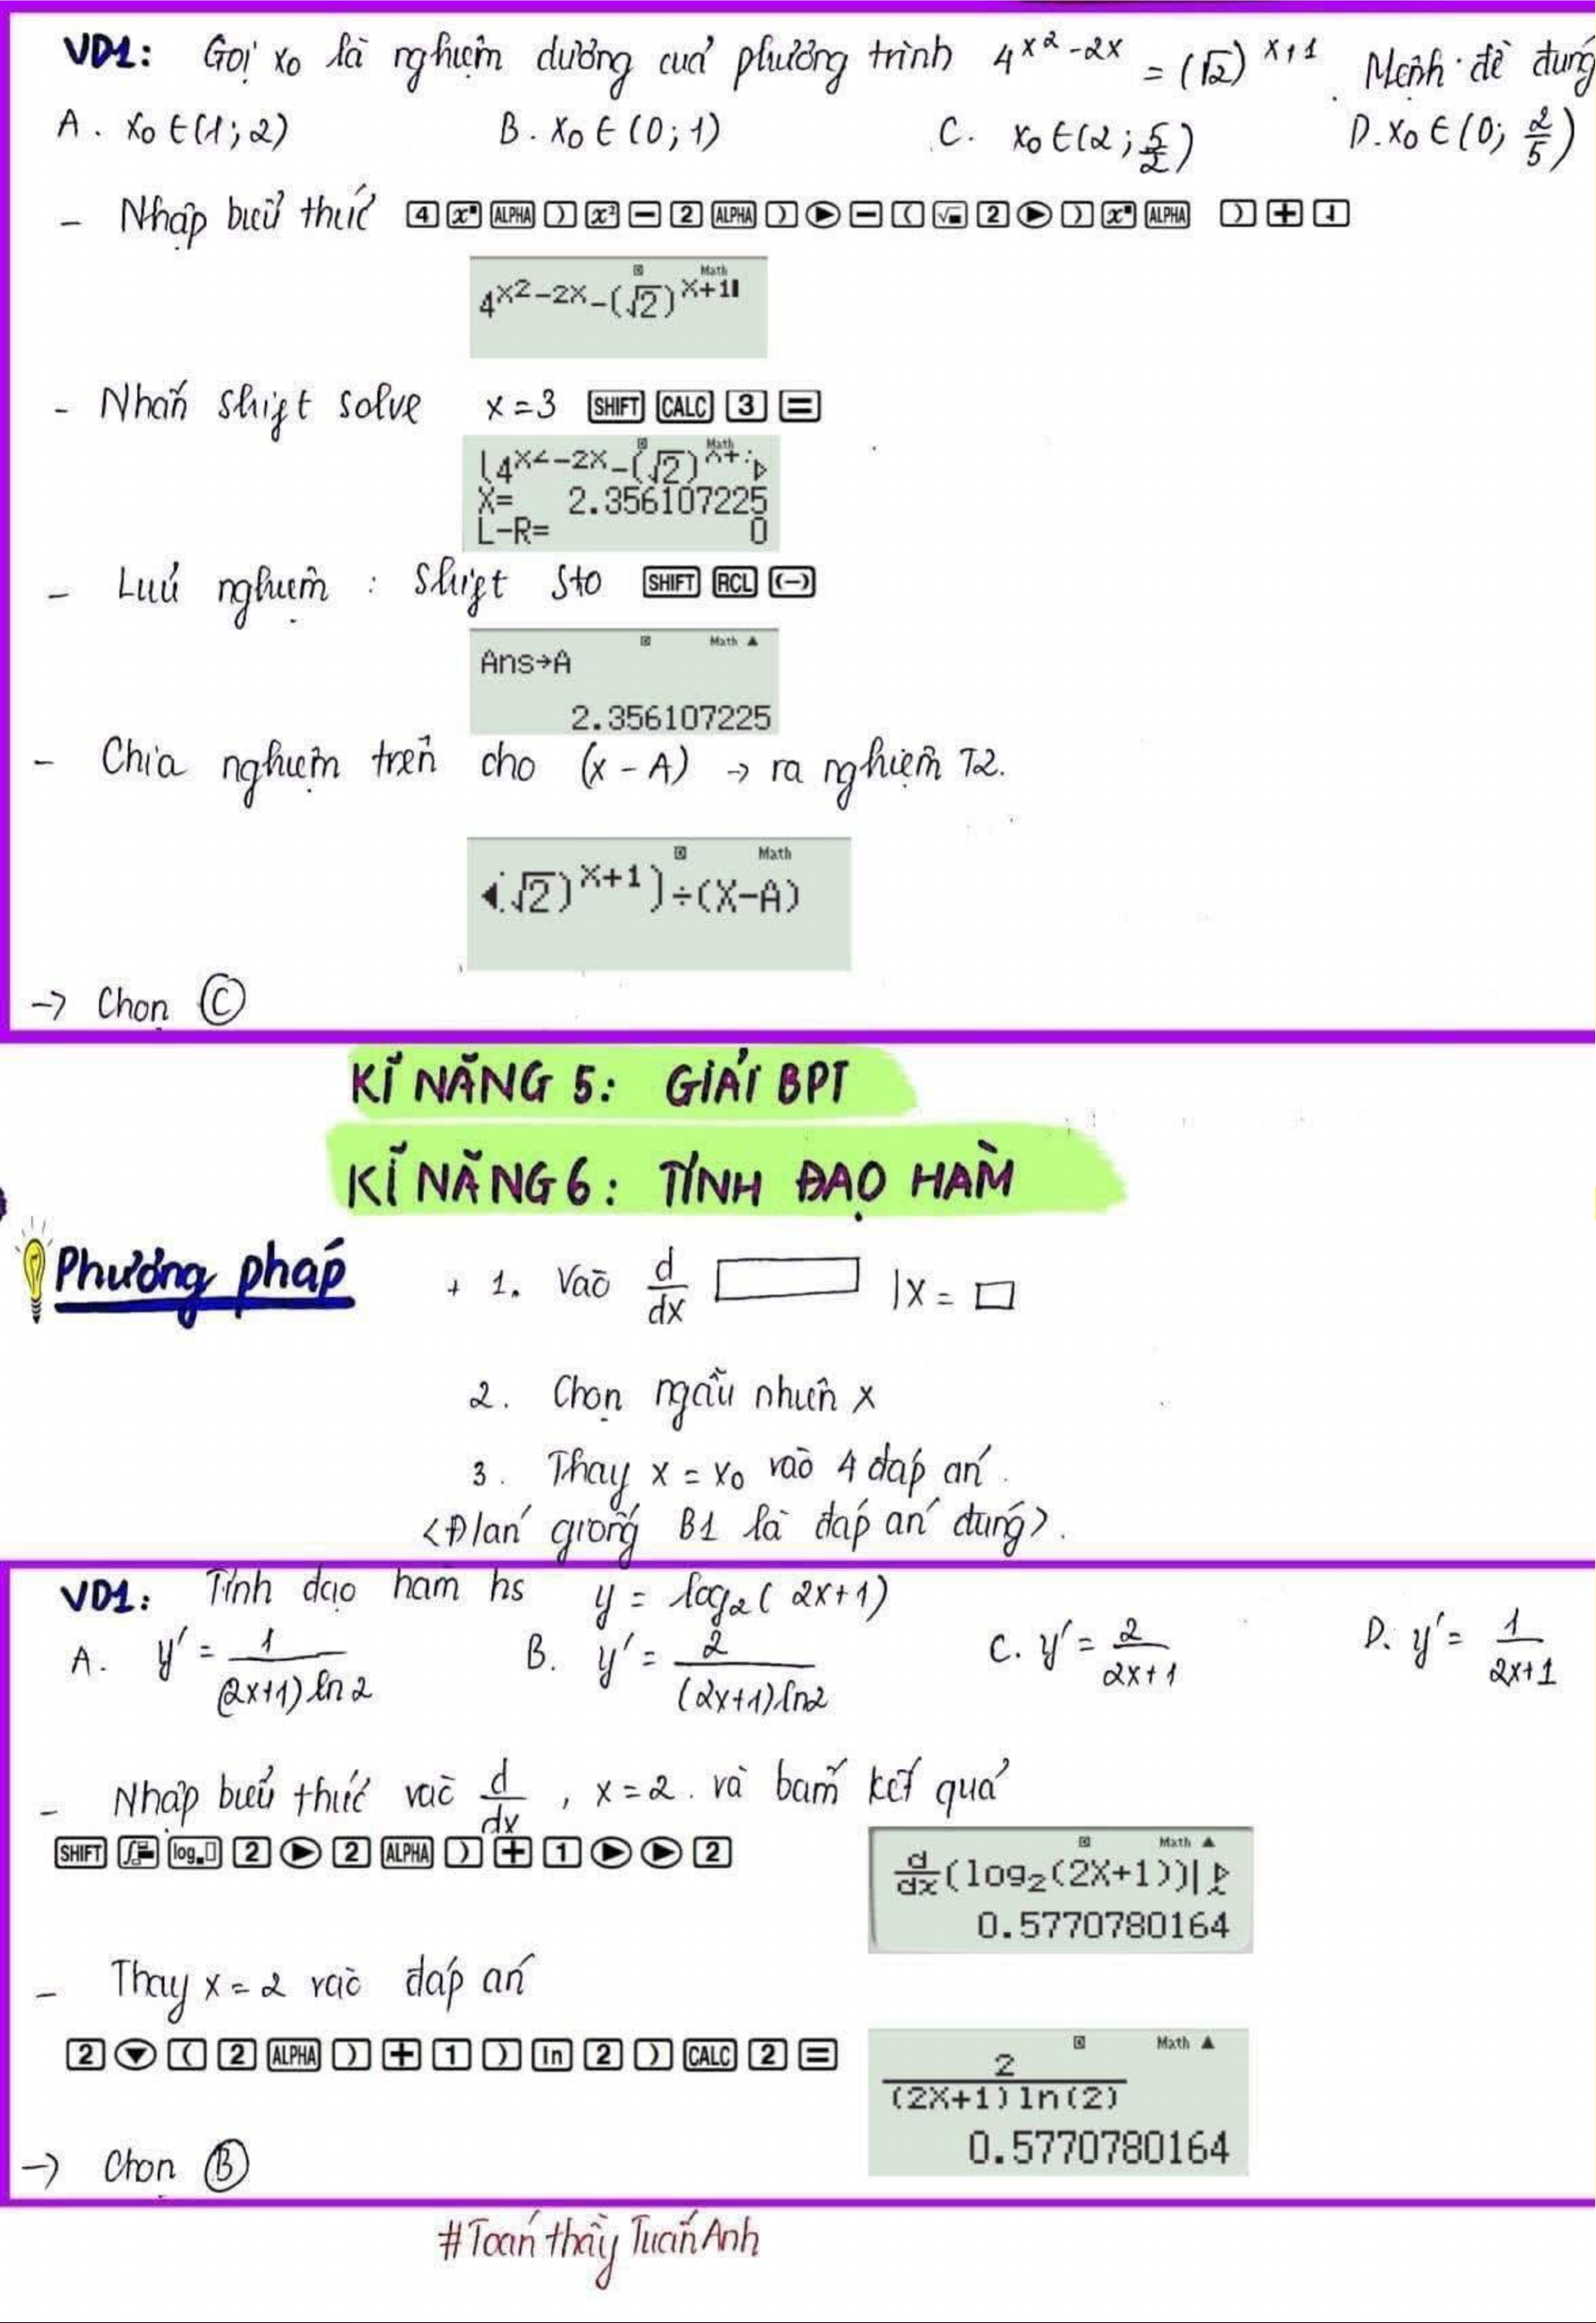 VD1: Gọi x₀ là nghiệm dương của phương trình 4^(x²-2x) = (√2)^(x+1). Mệnh đề đúng
A. x₀ ∈ (1; 2) B. x₀ ∈ (0; 1) C. x₀ ∈ (2; 5/2) D. x₀ ∈ (0; 2/5)
- Nhập biểu thức 4 x■ ALPHA ) x² − 2 ALPHA ) ▶ − ( √■ 2 ▶ ) x■ ALPHA ) + 1
D Math
4^(X²-2X)-(√2)^(X+1)
- Nhấn shift solve x = 3 SHIFT CALC 3 =
D Math
(4^(X²-2X)-(√2)^(X+ ▷
X= 2.356107225
L-R= 0
- Lưu nghiệm : shift sto SHIFT RCL (−)
D Math ▲
Ans→A
2.356107225
- Chia nghiệm trên cho (x - A) → ra nghiệm T2.
D Math
◀(√2)^(X+1))÷(X-A)
→ Chọn C
KĨ NĂNG 5: GIẢI BPT
KĨ NĂNG 6: TÍNH ĐẠO HÀM
Phương pháp + 1. Vào d/dx □ |x = □
2. Chọn ngẫu nhiên x
3. Thay x = x₀ vào 4 đáp án.
<Đ/án giống B1 là đáp án đúng>.
VD1: Tính đạo hàm hs y = log₂(2x+1)
A. y' = 1/((2x+1)ln2) B. y' = 2/((2x+1)ln2) C. y' = 2/(2x+1) D. y' = 1/(2x+1)
- Nhập biểu thức vào d/dx, x = 2. và bấm kết quả
SHIFT ∫ log■□ 2 ▶ 2 ALPHA ) + 1 ▶ ▶ 2
D Math ▲
d/dx(log₂(2X+1))| ▷
0.5770780164
- Thay x = 2 vào đáp án
2 ▼ ( 2 ALPHA ) + 1 ) ln 2 ) CALC 2 =
D Math ▲
2/((2X+1)ln(2))
0.5770780164
→ Chọn B
#Toán thầy Tuấn Anh